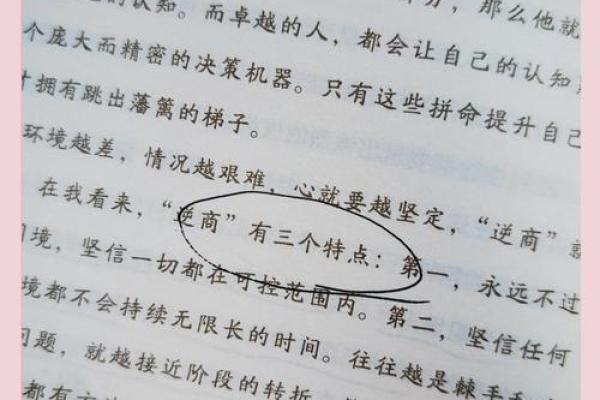 的认知。而卓越的人，都会让自己的认知
个庞大而精密的决策机器。只有这些拼命提升自己
拥有跳出藩篱的梯子。
环境越差，情况越艰难，心就要越坚定，“逆商”就
在我看来，“逆商”有三个特点：第一，永远不过
境，坚信一切都在可控范围内。第二，坚信任何
境都不会持续无限长的时间。往往越是棘手
问题，就越接近阶段的转折。
都有
那么他就